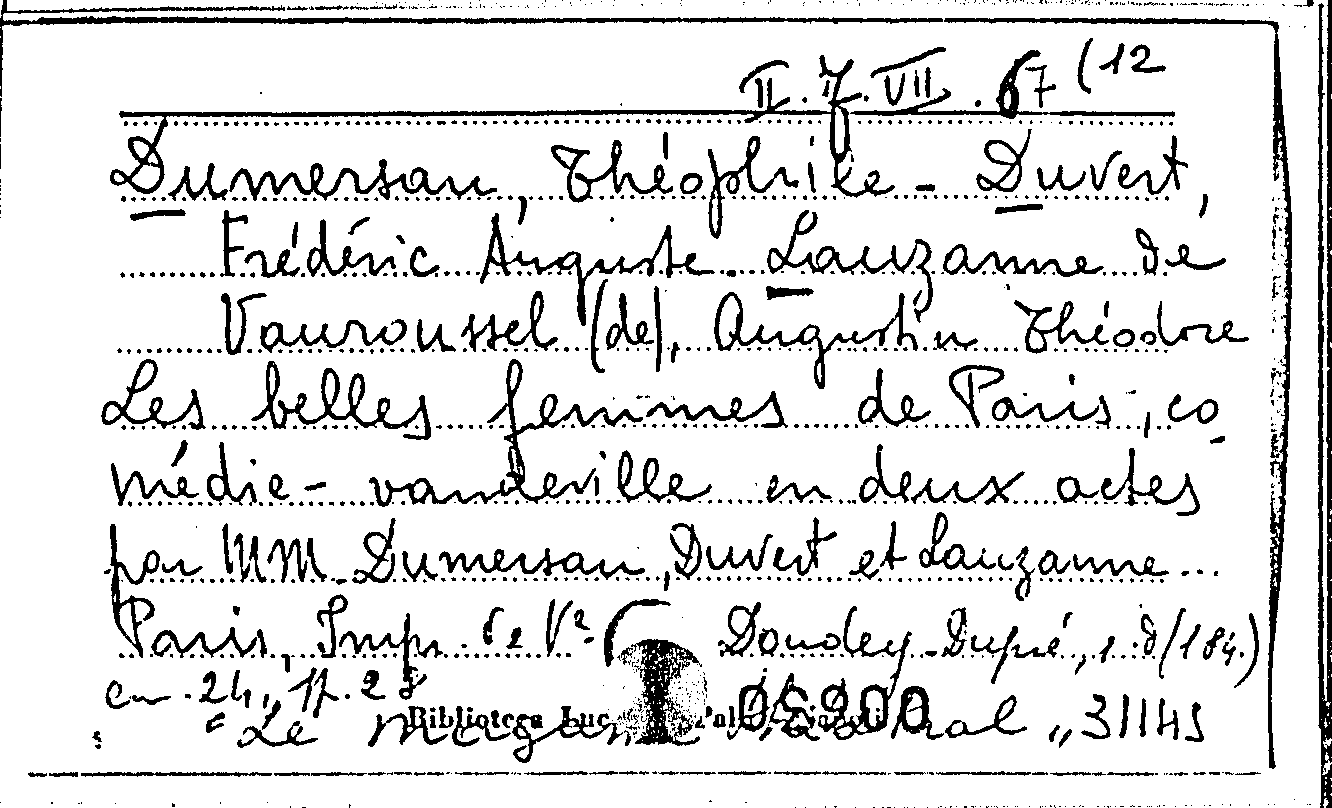 II.7.VII.67 (12
Dumersan, Théophile - Duvert,
Frédéric Auguste. Lauzanne de
Vauroussel (de), Augustin Théodore
Les belles femmes de Paris, co
médie-vaudeville en deux actes
par MM. Dumersan, Duvert et Lauzanne...
Paris, Impr. de Vᵉ Dondey-Dupré, s.d (184.)
cm. 24, pp. 28
Biblioteca
00930
"Le Magasin théatral „ 31145